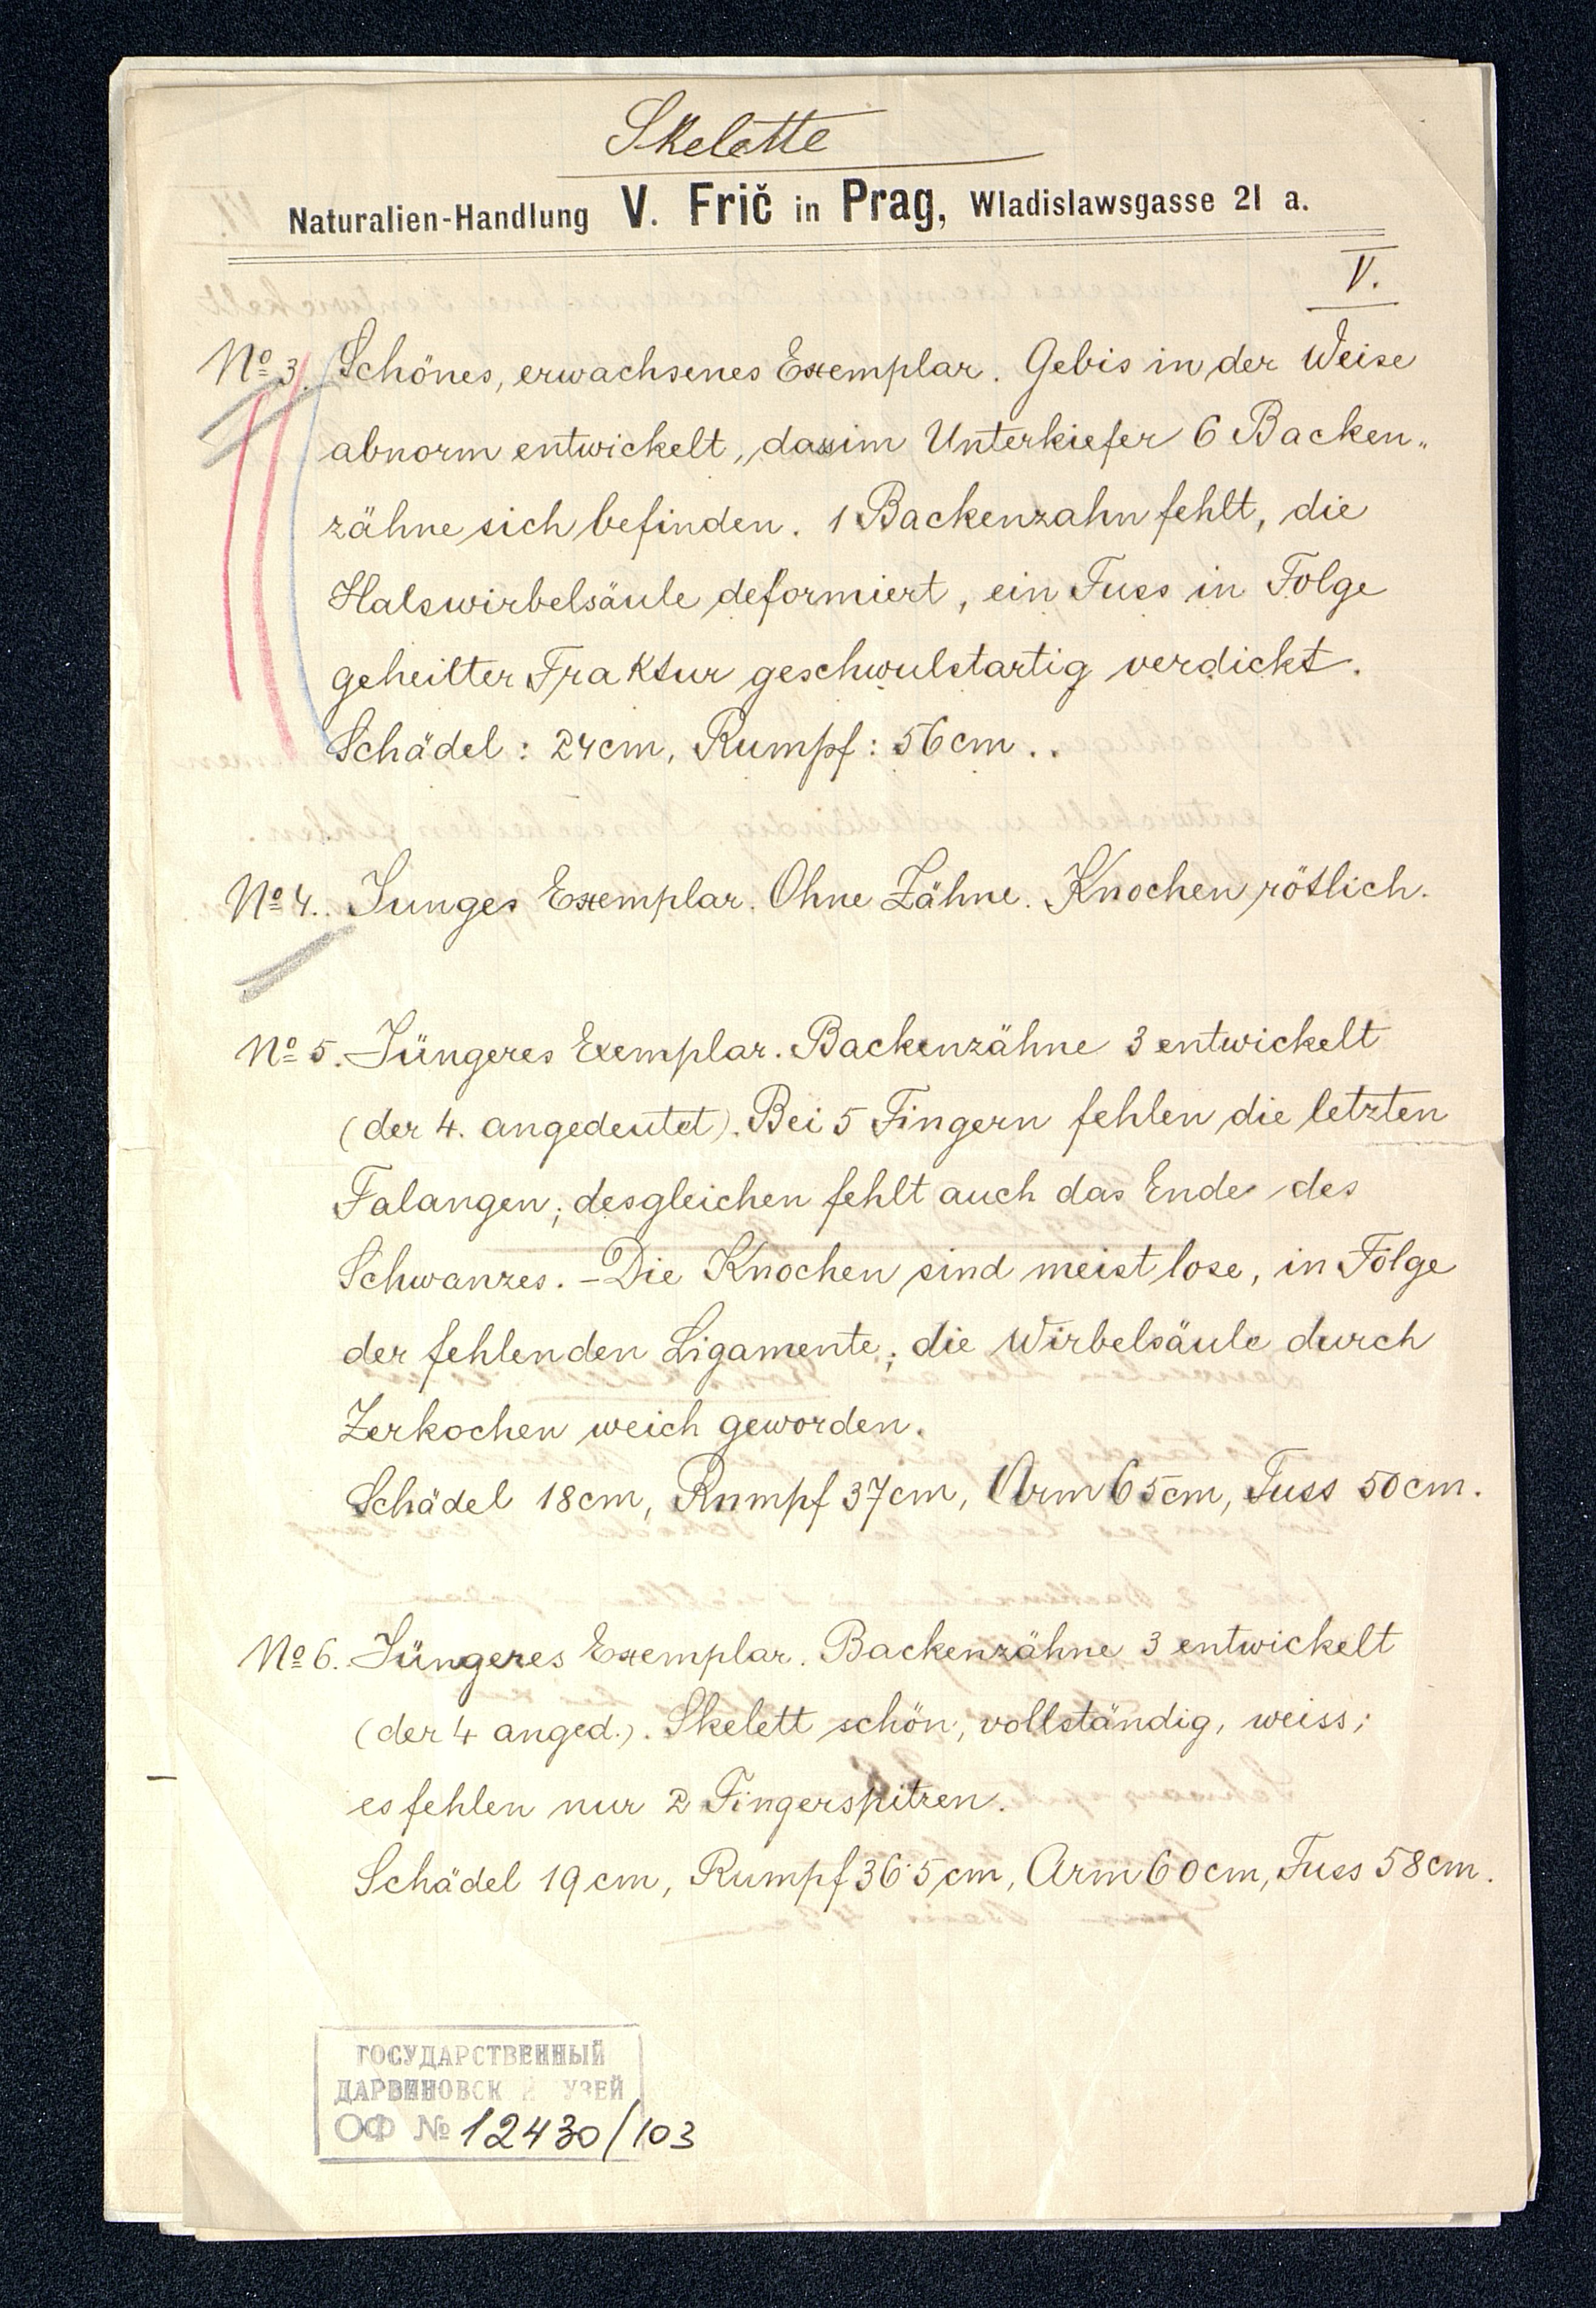 Skelette
Naturalien-Handlung V. Frič in Prag, Wladislawsgasse 21 a.
V.
No 3. Schönes, erwachsenes Exemplar. Gebis in der Weise
abnorm entwickelt, dass im Unterkiefer 6 Backen„
zähne sich befinden. 1 Backenzahn fehlt, die
Halswirbelsäule deformiert, ein Fuss in Folge
geheilter Fraktur geschwulstartig verdickt.
Schädel: 24cm, Rumpf: 56cm..
No 4.. Junges Exemplar. Ohne Zähne. Knochen rötlich.
No 5. Jüngeres Exemplar. Backenzähne 3 entwickelt
(der 4. angedeutet). Bei 5 Fingern fehlen die letzten
Falangen; desgleichen fehlt auch das Ende des
Schwanzes. – Die Knochen sind meist lose, in Folge
der fehlenden Ligamente; die Wirbelsäule durch
Zerkochen weich geworden.
Schädel 18cm, Rumpf 37cm, Arm 65cm, Fuss 50cm.
No 6. Jüngeres Exemplar. Backenzähne 3 entwickelt
(der 4 anged.). Skelett schön, vollständig, weiss;
es fehlen nur 2 Fingerspitzen.
Schädel 19cm, Rumpf 36·5cm, Arm 60cm, Fuss 58cm.
ГОСУДАРСТВЕННЫЙ
ДАРВИНОВСК Й УЗЕЙ
ОФ № 12430/103